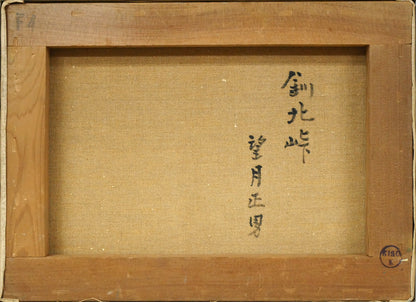 釧北峠
望月正男